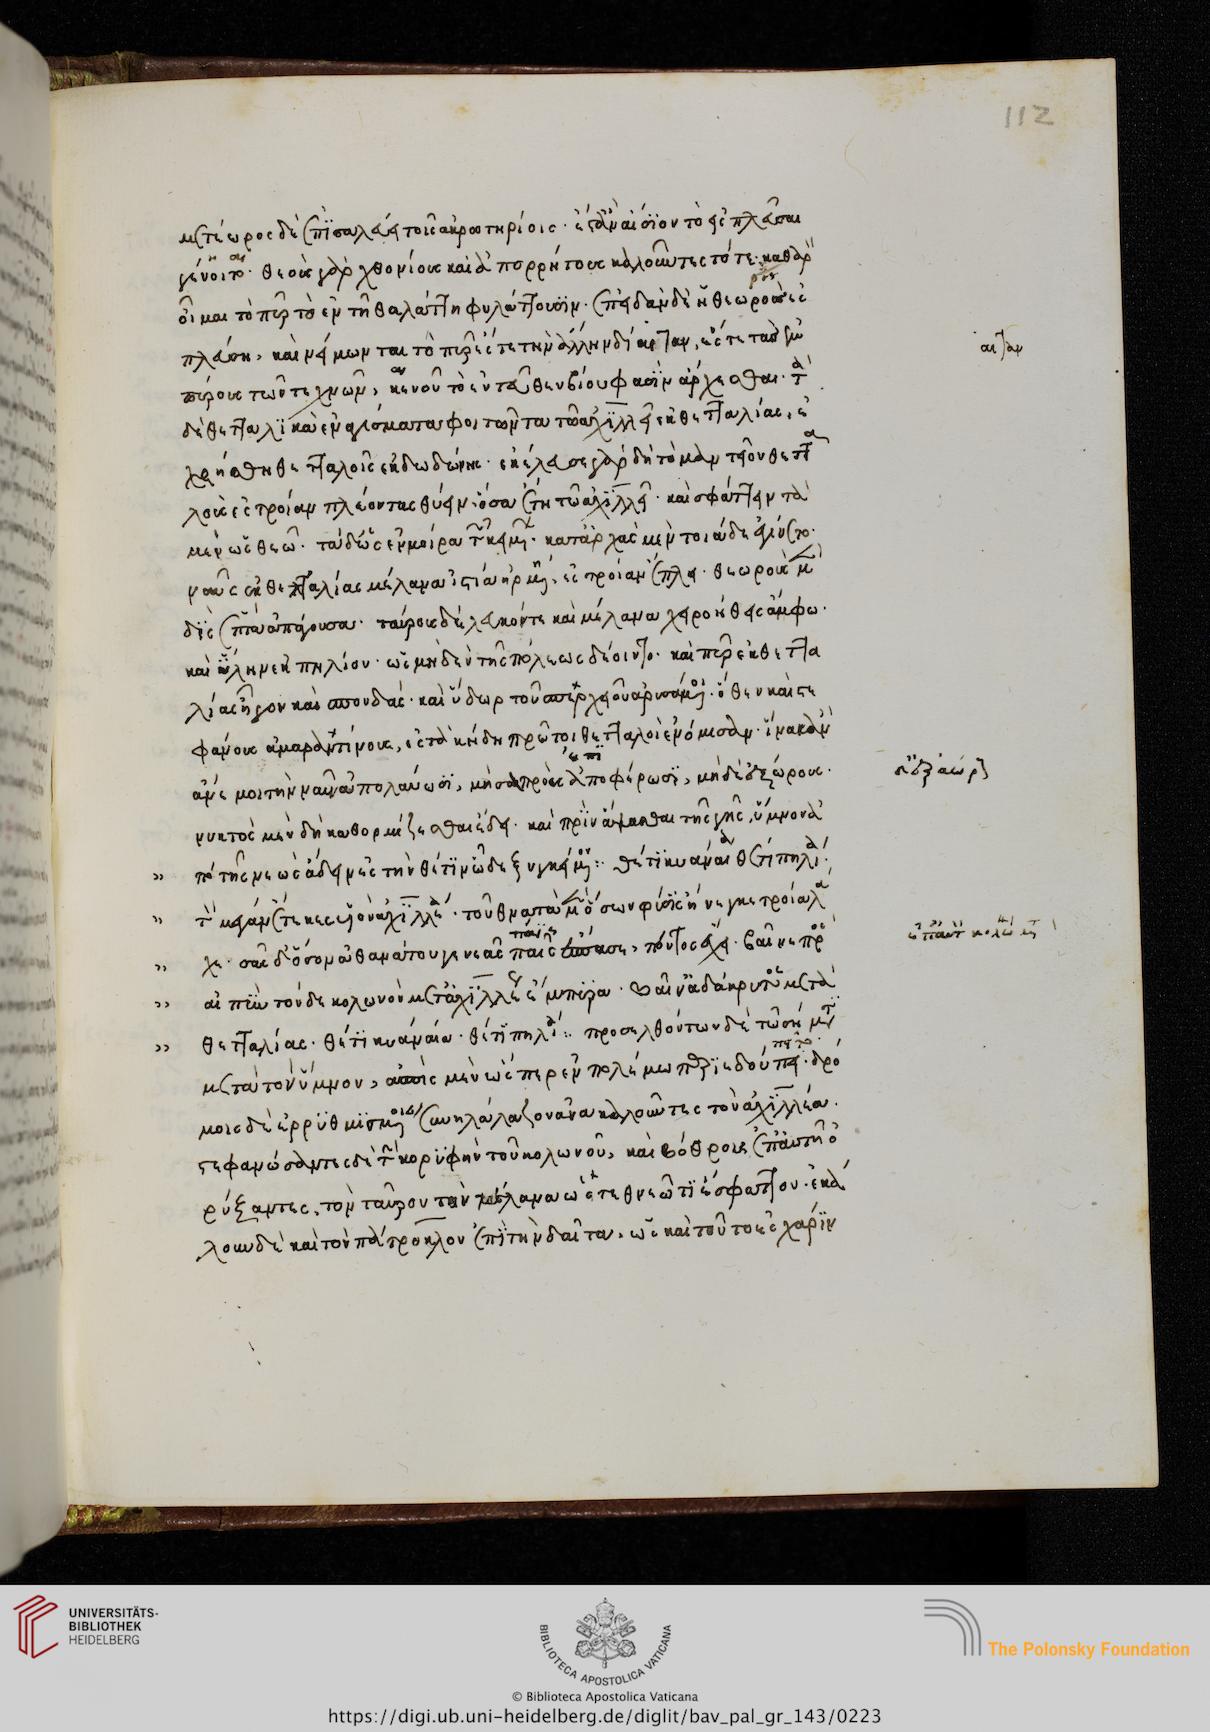 112
μετέωρος δὲ ἐπισαλεύει τοῖς ἀκρωτηρίοις
γένοιτο · θεοὺς γὰρ χθονίους καὶ ἀπορρήτους καλοῦντες τότε · καθαρὸν
οἶμαι τὸ πῦρ τὸ ἐν τῇ θαλάττῃ φυλάττουσιν · ἐπειδὰν δὲ ἡ θεωρὶς ἐς
πλεύσῃ, καὶ νείμωνται τὸ πῦρ ἔς τε τὴν ἄλλην δίαιταν, ἔς τε τὰς ἐμ
πύρους τῶν τεχνῶν, καινοῦ τὸ ἐντεῦθεν βίου φασὶν ἄρχεσθαι · τὰ
δὲ θετταλικὰ ἐναγίσματα φοιτῶντα τῷ ἀχιλλεῖ ἐκ θετταλίας, ἐ
χρήσθη θετταλοῖς ἐκ δωδώνης · ἐκέλευσε γὰρ δὴ τὸ μαντεῖον θεττα
λοὺς ἐς τροίαν πλέοντας θύειν ὅσα ἔτη τῷ ἀχιλλεῖ · καὶ σφάττειν τὰ
μὲν ὡς θεῷ · τὰ δὲ ὡς ἐν μοίρᾳ τῶν κειμένων · καταρχὰς μὲν τοιάδε ἐγίνετο ·
ναῦς ἐκ θετταλίας μέλανα ἱστία ἠρμένη, ἐς τροίαν ἔπλει · θεωροὺς μὲν
δὶς ἑπτὰ ἀπάγουσα · ταύρους δὲ λευκόν τε καὶ μέλανα χειροήθεις ἄμφω ·
καὶ ὕλην ἐκ πηλίου · ὡς μηδὲν τῆς πόλεως δέοιντο · καὶ πῦρ ἐκ θεττα
λίας ἦγον καὶ σπονδάς · καὶ ὕδωρ τοῦ σπερχειοῦ ἀρυσάμενοι · ὅθεν καὶ στε
φάνους ἀμαραντίνους, ἐς τὰ κήδη πρῶτοι θετταλοὶ ἐνόμισαν · ἵνα κἂν
ἄνεμοι τὴν ναῦν ἀπολάβωσι, μὴ σαπροὺς ἐπιφέρωσι, μὴ δὲ ἐξώρους ·
νυκτὸς μὲν δὴ καθορμίζεσθαι ἔδει · καὶ πρὶν ἅψασθαι τῆς γῆς, ὕμνον ἀ
πὸ τῆς νεὼς ᾄδειν ἐς τὴν θέτιν ὧδε ξυγκείμενον : θέτι κυανέα θέτι πηλεία
τὸν μέγαν ἔτεκες υἱὸν ἀχιλλέα · τοῦ θνατὰ μὲν ὅσον φύσις ἤνεγκε τροία λά
χε · σᾶς δ᾽ ὅσον ἀθανάτου γενεᾶς παῖς ἔσπασε, πόντος ἔχει · βαῖνε πρὸς
αἰπὺν τόνδε κολωνὸν μετ᾽ ἀχιλλέως ἔμπυρα · βαῖν᾽ ἀδάκρυτος μετὰ
θετταλίας · θέτι κυανέα · θέτι πηλεία : προσελθόντων δὲ τῷ σήματι
μετὰ τὸν ὕμνον, ἀσπὶς μὲν ὥσπερ ἐν πολέμῳ ἐδουπεῖτο · δρό
μοις δὲ ἐρρυθμισμένοις συνηλάλαζον ἀνακαλοῦντες τὸν ἀχιλλέα ·
στεφανώσαντες δὲ τὴν κορυφὴν τοῦ κολωνοῦ, καὶ βόθρους ἐπ᾽ αὐτῇ ὀ
ρύξαντες, τὸν ταῦρον τὸν μέλανα ὡς τεθνεῶτι ἔσφαττον · ἐκά
λουν δὲ καὶ τὸν πάτροκλον ἐπὶ τὴν δαῖτα, ὡς καὶ τοῦτο ἐς χάριν
UNIVERSITÄTS-
BIBLIOTHEK
HEIDELBERG
BIBLIOTECA APOSTOLICA VATICANA
The Polonsky Foundation
© Biblioteca Apostolica Vaticana
https://digi.ub.uni-heidelberg.de/diglit/bav_pal_gr_143/0223